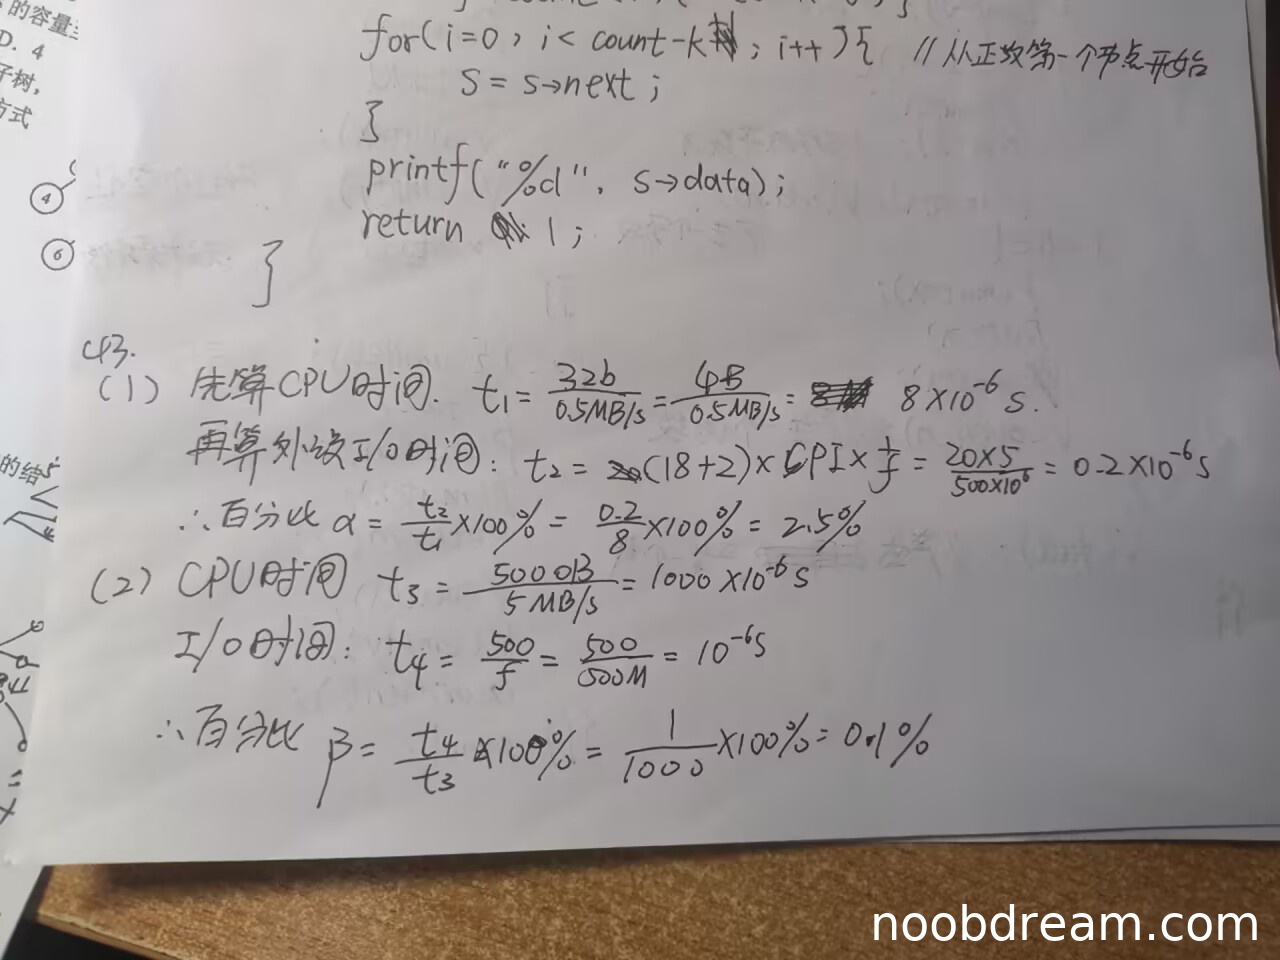 的容量
D. 4
子树,
方式
for(i=0, i< count-k ; i++){ //从正数第一个节点开始
s = s→next ;
}
printf("%d", s→data);
return 1 ;
}
4
6
的结
43.
(1) 先算CPU时间. t₁ = 32b/0.5MB/s = 4B/0.5MB/s = 8×10⁻⁶ s.
再算外设I/O时间: t₂ = (18+2)× CPI × 1/f = 20×5/500×10⁶ = 0.2×10⁻⁶s
∴百分比 α = t₂/t₁ ×100% = 0.2/8 ×100% = 2.5%
(2) CPU时间 t₃ = 5000B/5MB/s = 1000 ×10⁻⁶ s
I/O时间: t₄ = 500/f = 500/500M = 10⁻⁶s
∴百分比 β = t₄/t₃ ×100% = 1/1000 ×100% = 0.1%
noobdream.com